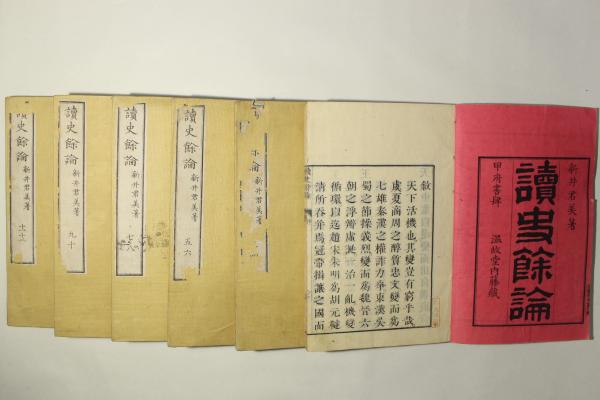 新井君美著
讀史餘論
甲府書肆 溫故堂内藤藏
敘
天下活機也其變豈有窮乎哉
虞夏商周之醇質忠文變而爲
七雄秦漢之權詐力爭東漢吳
蜀之節操義烈變而爲魏晉六
朝之浮辨虛誕一治一亂機變
循環以迄趙宋朱明爲胡元韃
清所吞并爲冠帶揖讓之國而
論 新井君美著
讀史餘論 新井君美著 五六
讀史餘論 新井君美著 七八
讀史餘論 新井君美著 九十
史餘論 新井君美著 十一十二